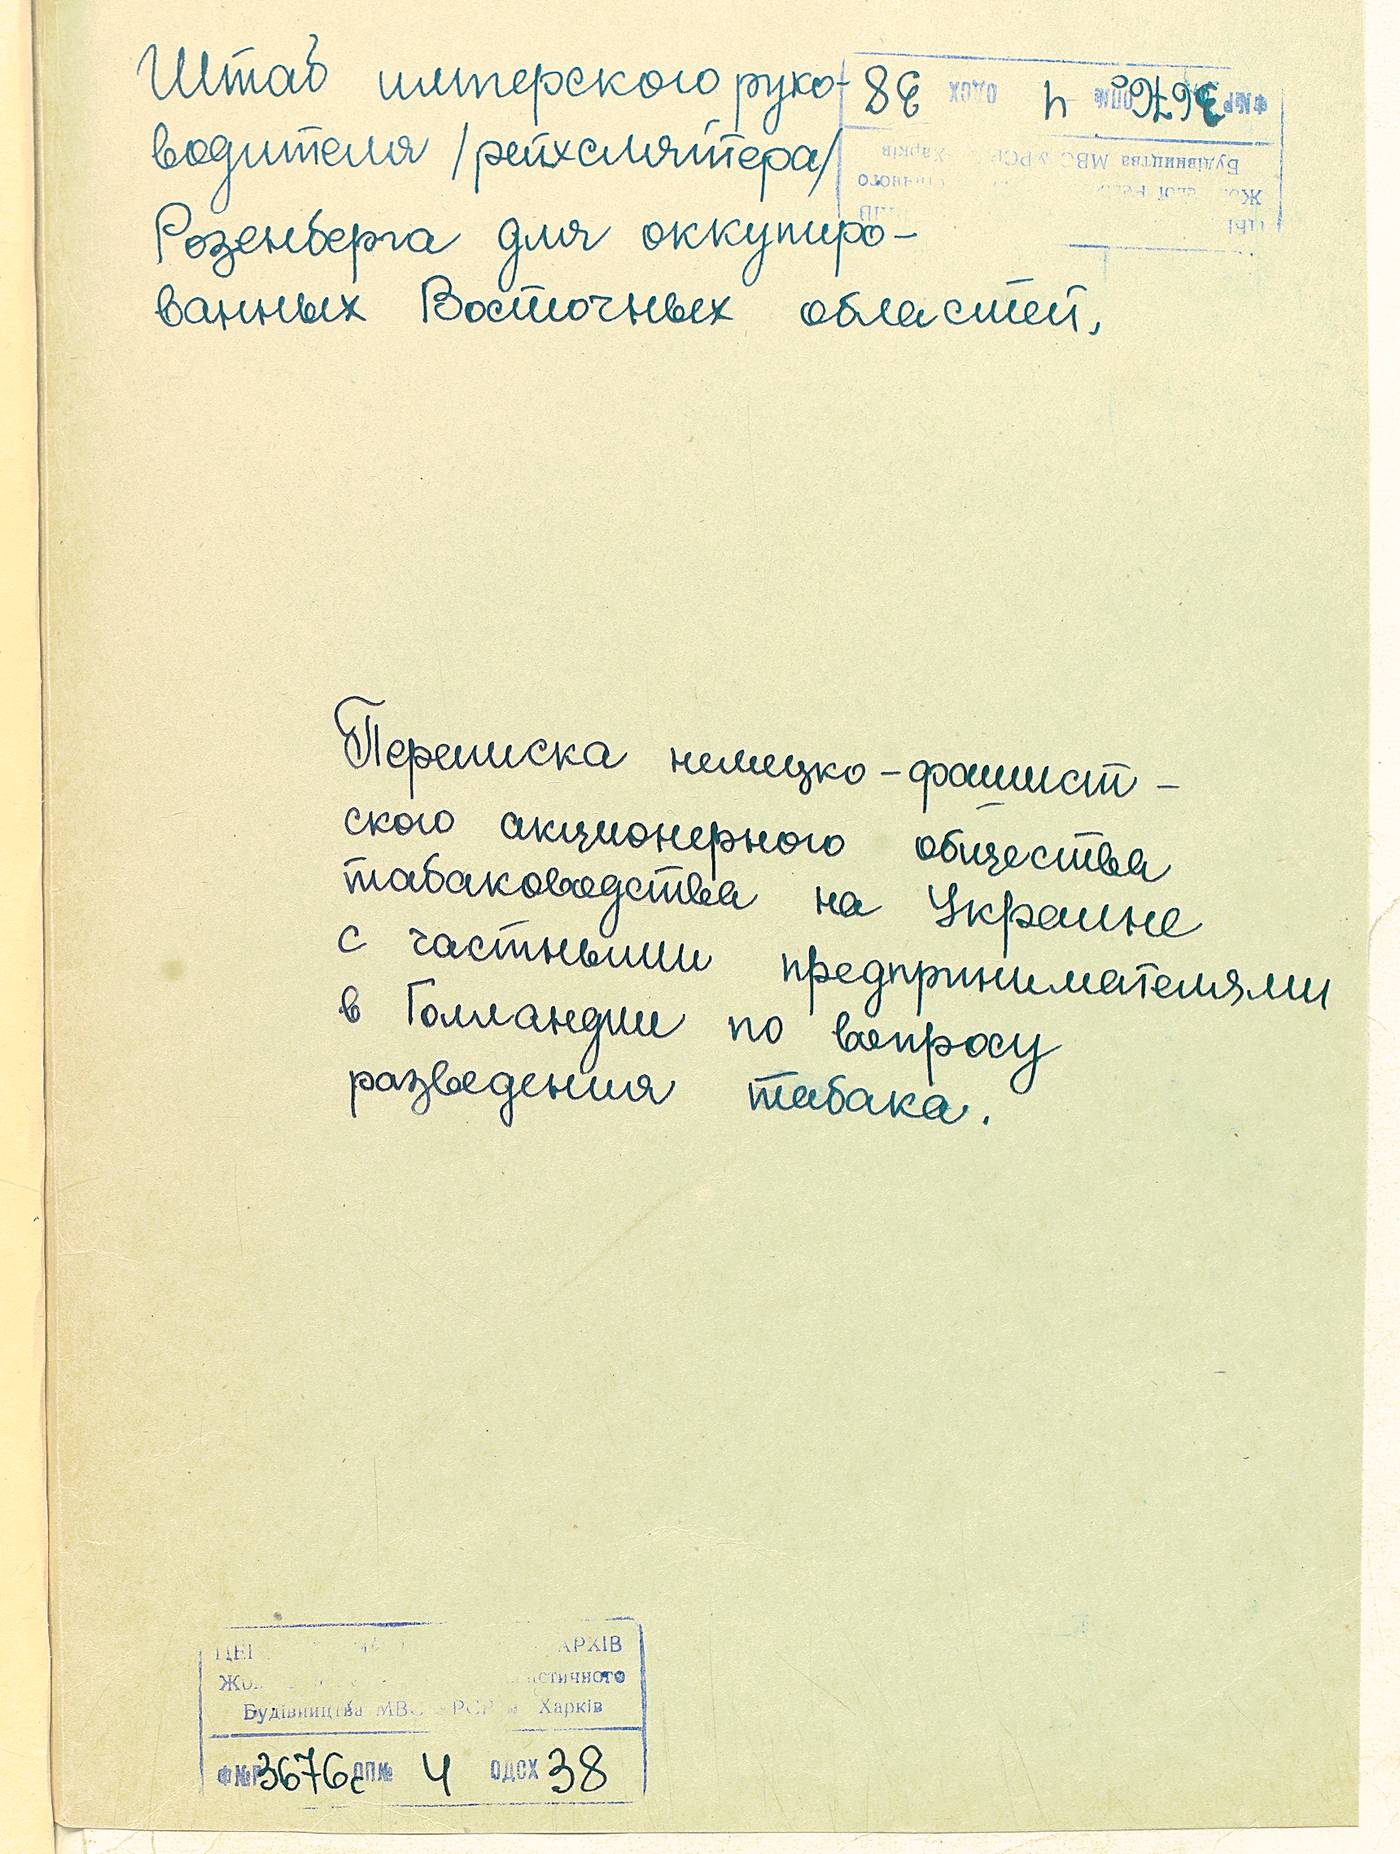 Штаб имперского руко-
водителя /рейхсляйтера/
Розенберга для оккупиро-
ванных Восточных областей.
3676с 4 ОДСХ 38
Будівництва МВС УРСР Харків
Переписка немецко-фашист-
ского акционерного общества
табаководства на Украине
с частными предпринимателями
в Голландии по вопросу
разведения табака.
АРХІВ
Будівництва МВС УРСР Харків
Ф№ 3676с ОП№ 4 ОДСХ 38